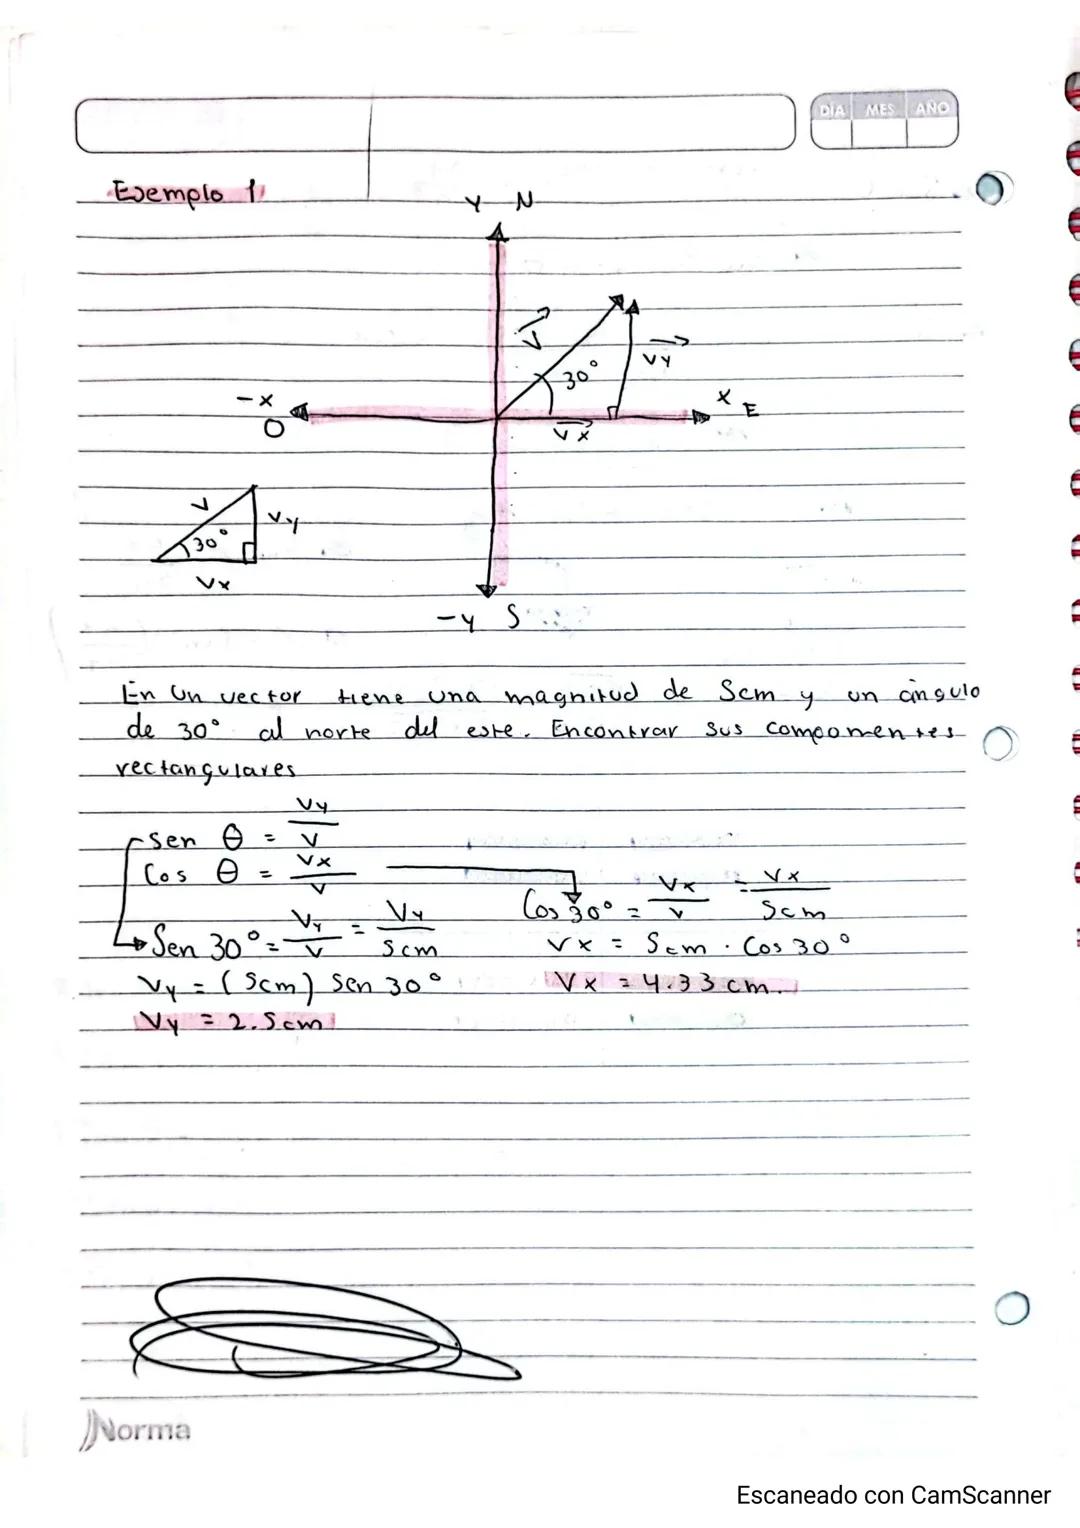 DÍA MES AÑO
Ejemplo 1
Y N
V
30°
Vy
-x
O
x E
Vx
V
30°
Vy
Vx
-y S
En un vector tiene una magnitud de 5cm y un ángulo
de 30° al norte del este. Encontrar sus componentes
rectangulares
Sen θ = Vy/V
Cos θ = Vx/V
Cos 30° = Vx/V = Vx/5cm
Sen 30° = Vy/V = Vy/5cm
Vx = 5cm · Cos 30°
Vy = (5cm) Sen 30°
Vx = 4.33 cm.
Vy = 2.5cm
Norma
Escaneado con CamScanner